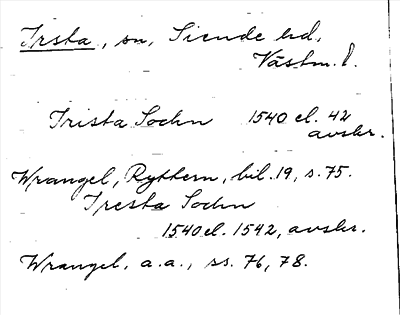 Irsta, sn, Siende hd,
Västm. l.
Irista Sochn 1540 el. 42
avskr.
Wrangel, Ryttern, bil. 19, s. 75.
Iresta Sochn
1540 el. 1542, avskr.
Wrangel. a.a., ss. 76, 78.